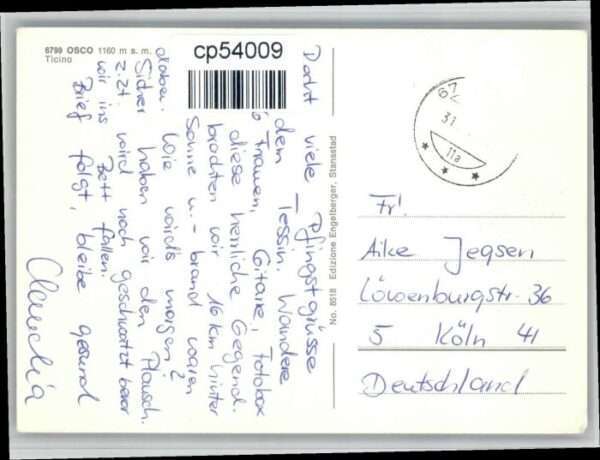 6799 OSCO 1160 m s. m.
Ticino
cp54009
viele Pfingstgrüsse
dem Tessin. Wandere
6 Frauen, Gitarre, Fotobox
diese herrliche Gegend.
brachten wir 16 km hinter
Sonne u. - brand waren
dabei.
Wie wird's morgen?
Sicher haben wir den Plausch.
z.Zt. wird noch geschwatzt bevor
wir ins Bett fallen.
Brief folgt, bleibe gesund
Claudia
No. 8518 Edizione Engelberger, Stansstad
11a
Frl.
Aike Jegsen
Löwenburgstr. 36
5 Köln 41
Deutschland